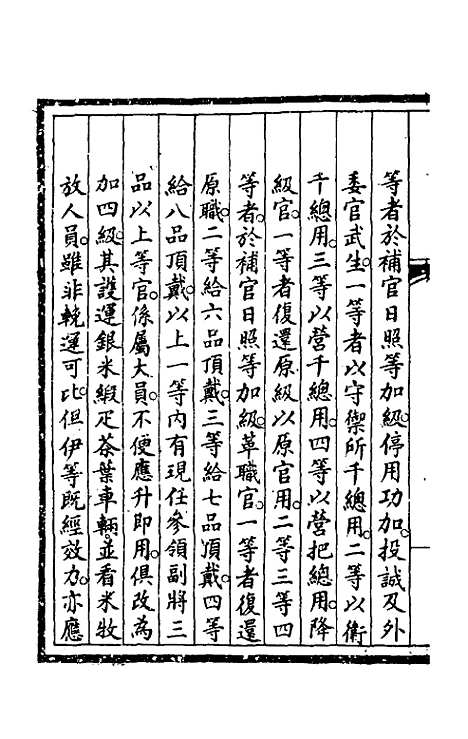 等者於補官日照等加級。停用功加投誠及外
委官武生。一等者以守禦所千總用。二等以衛
千總用。三等以營千總用。四等以營把總用。降
級官。一等者復還原級以原官用。二等三等四
等者。於補官日照等加級。革職官。一等者復還
原職。二等給六品頂戴。三等給七品頂戴。四等
給八品頂戴。以上一等內有現任參領副將三
品以上等官。係屬大員。不便應升即用。俱改為
加四級。其護運銀米緞疋茶葉車輛。並看米牧
放人員。雖非輓運可比。但伊等既經效力。亦應